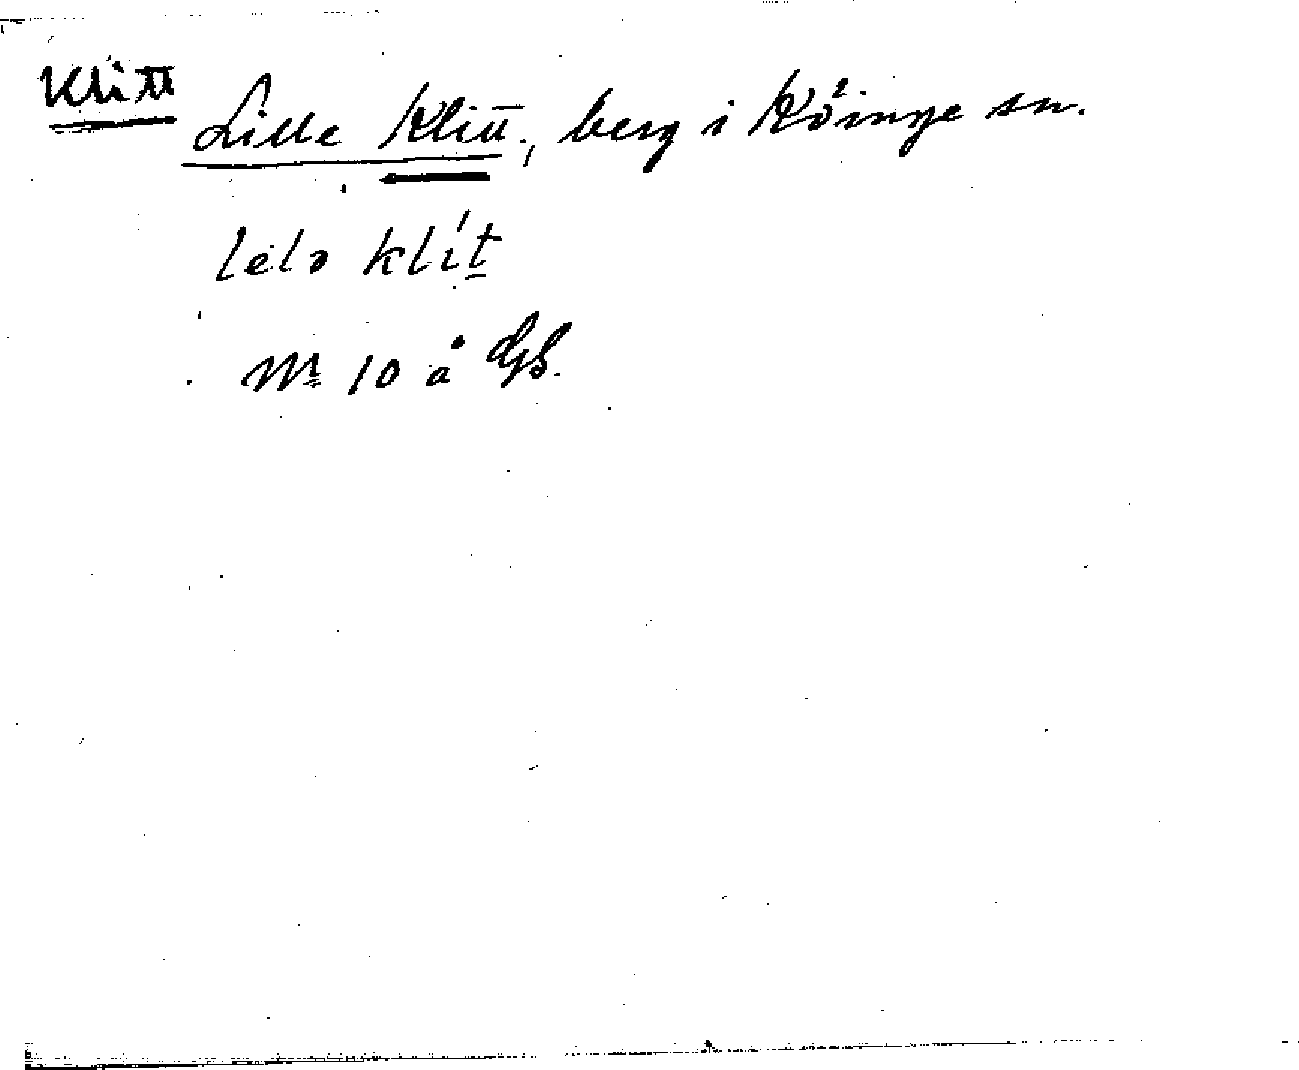 Klitt
Lille Klitt, berg i Köinge sn.
lelə klít
Nr 10 å GS.